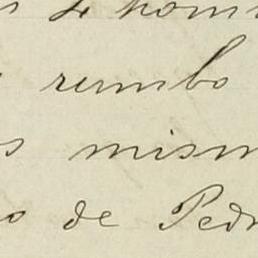 4 hom
rumbo
s mism
o de Ped